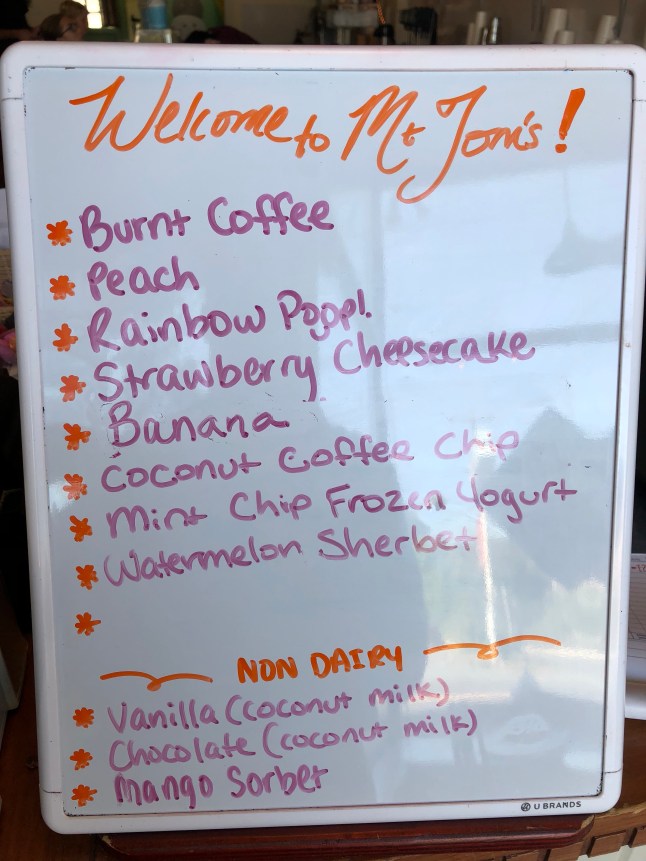 Welcome to Mt Joni's!
Burnt Coffee
Peach
Rainbow Poop!
Strawberry Cheesecake
Banana
Coconut Coffee Chip
Mint Chip Frozen Yogurt
Watermelon Sherbet
NON DAIRY
Vanilla (coconut milk)
Chocolate (coconut milk)
Mango Sorbet
U BRANDS